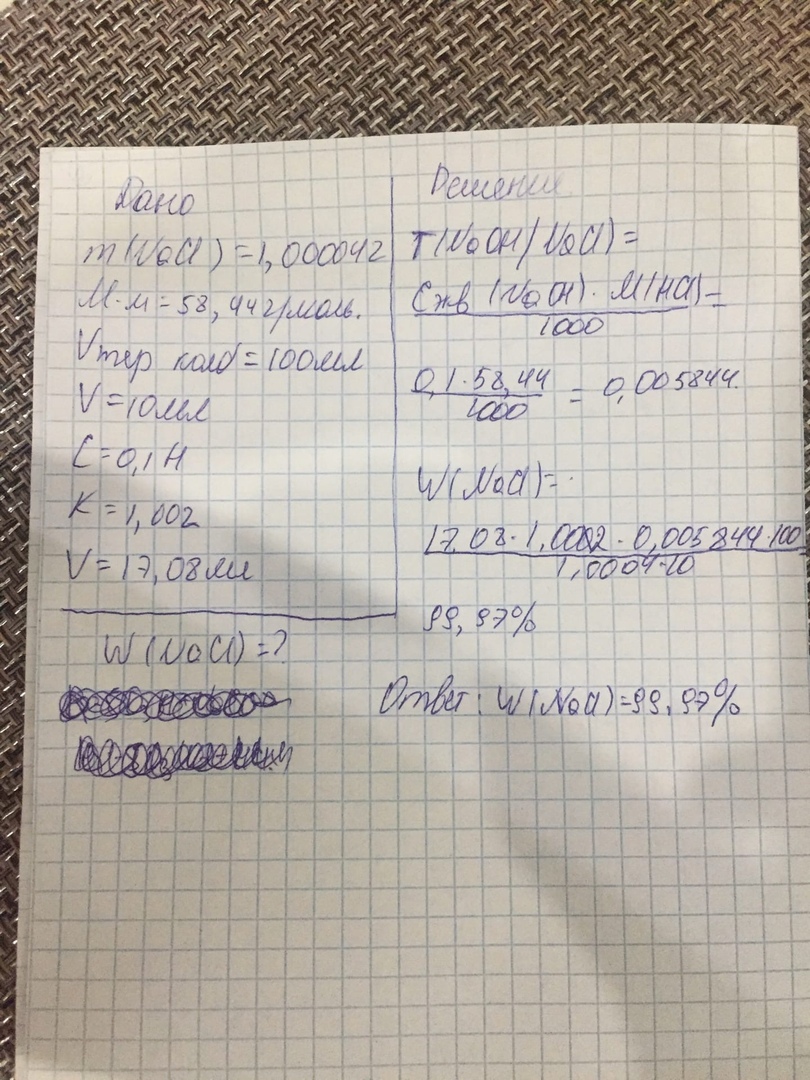 Дано
m(NaCl) = 1,00004г
М.м = 58,44г/моль.
Vмер колб = 100мл
V = 10мл
C = 0,1 Н
K = 1,002
V = 17,08мл
W(NaCl) = ?
Решение
T(NaOH/NaCl) =
Cэкв (NaOH) · M(HCl) =
1000
0,1 · 58,44
1000
= 0,005844.
W(NaCl) =
17,08 · 1,0002 · 0,005844 · 100
1,0004 · 10
99,97%
Ответ: W(NaCl) = 99,97%